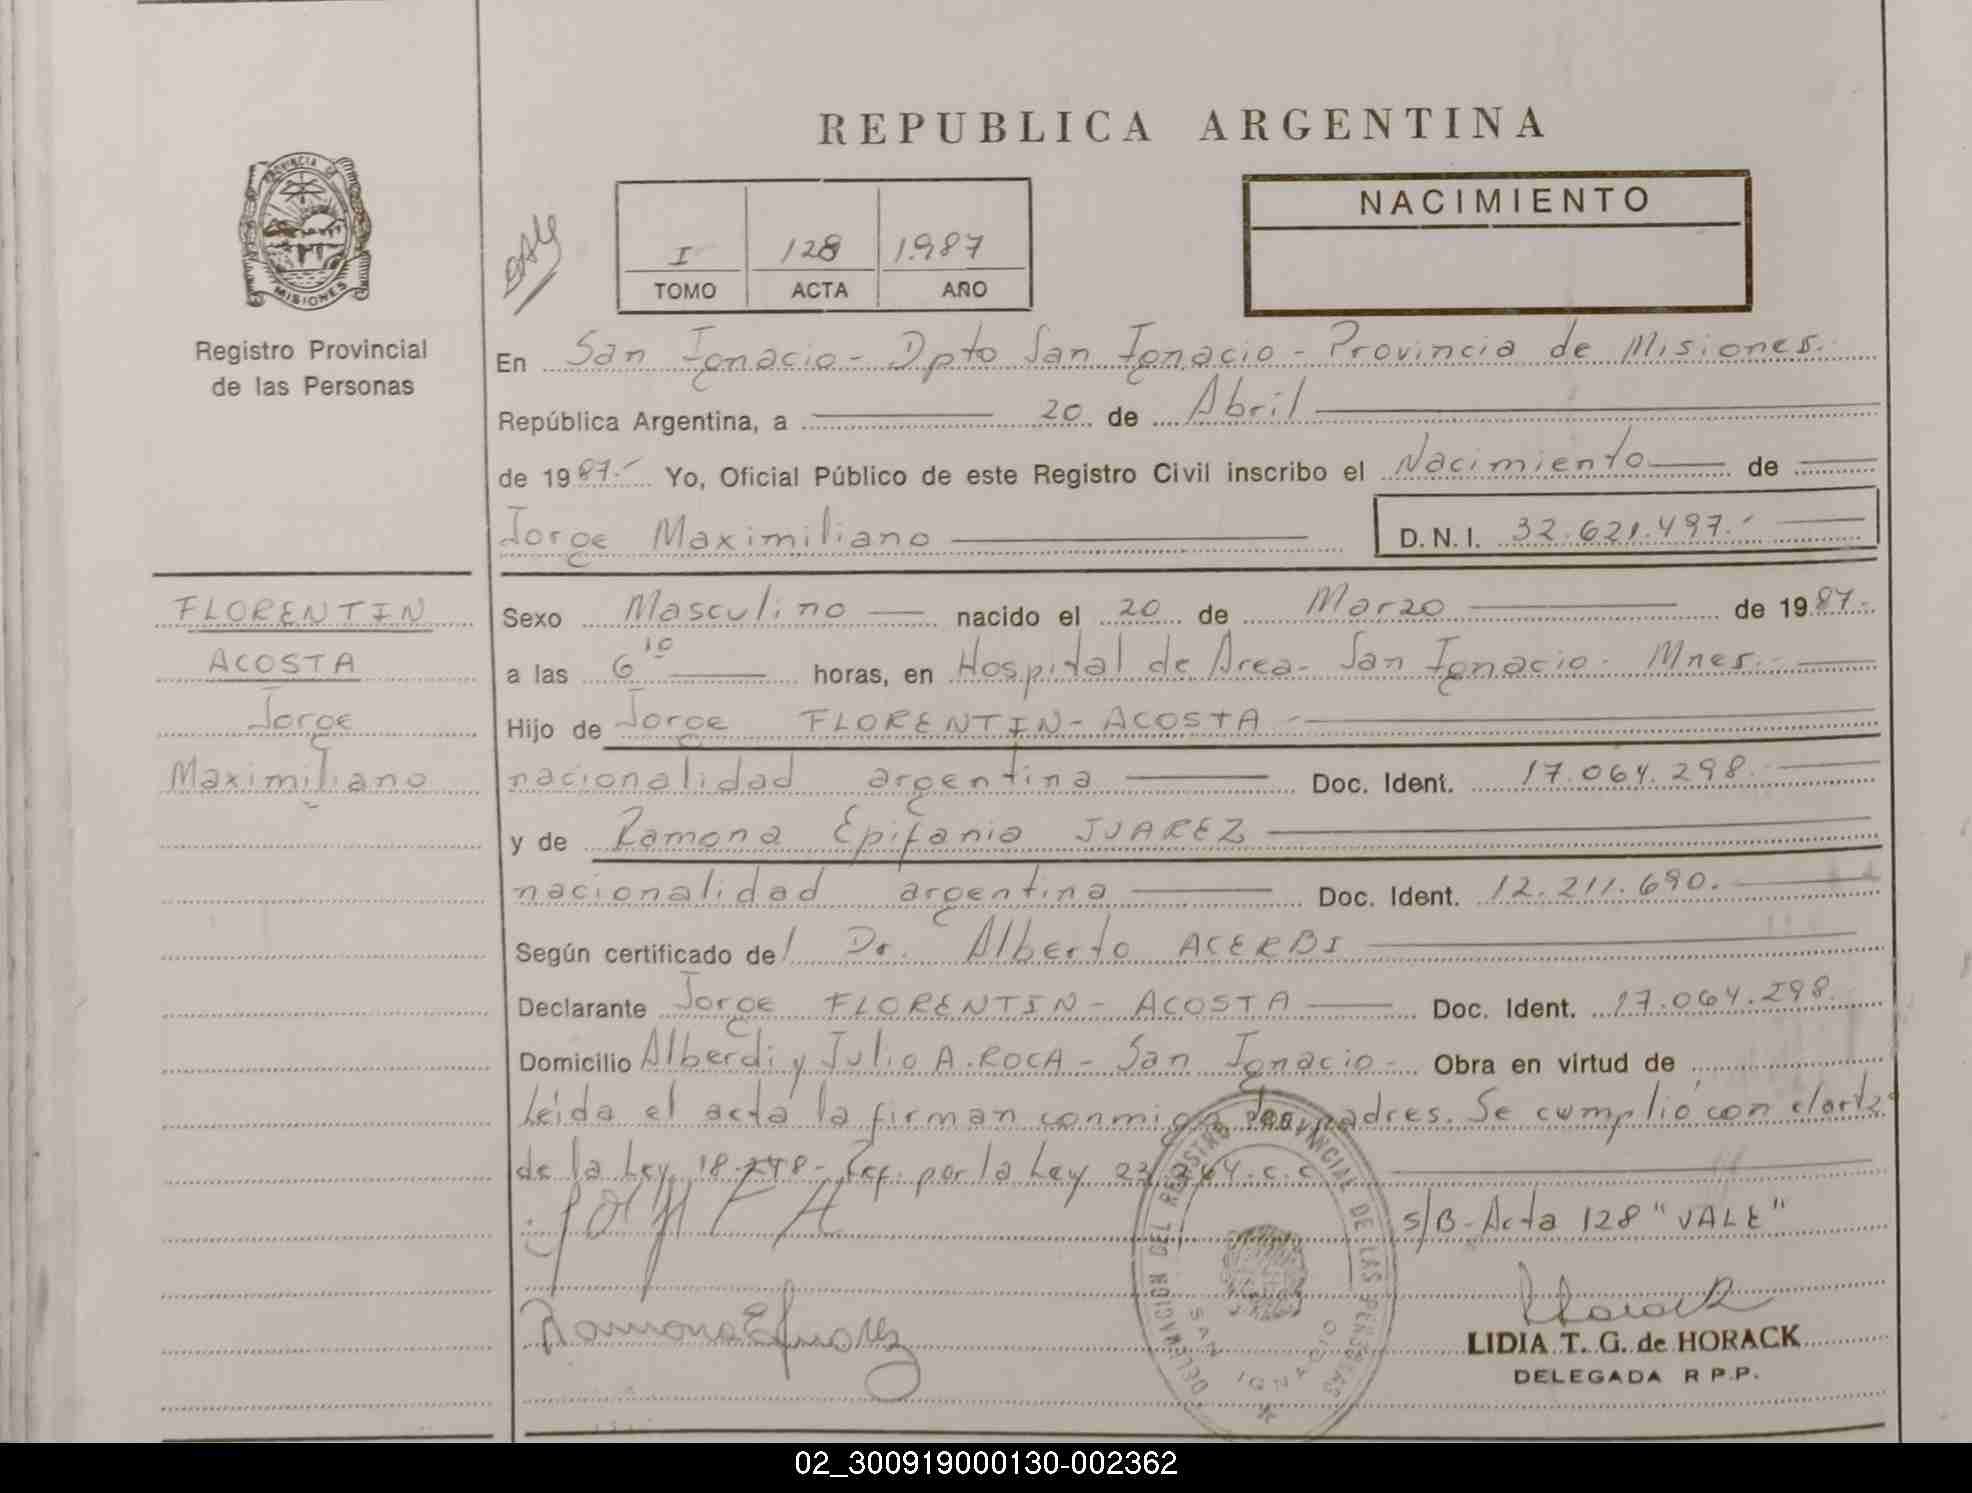 REPUBLICA ARGENTINA
PROVINCIA DE
MISIONES
Registro Provincial
de las Personas
NACIMIENTO
I 128 1.987
TOMO ACTA AÑO
En San Ignacio - Dpto San Ignacio - Provincia de Misiones.
República Argentina, a 20 de Abril
de 1987.- Yo, Oficial Público de este Registro Civil inscribo el Nacimiento de
Jorge Maximiliano D.N.I. 32.621.497.-
FLORENTIN
ACOSTA
Jorge
Maximiliano
Sexo Masculino nacido el 20 de Marzo de 1987.-
a las 6 10 horas, en Hospital de Area - San Ignacio - Mnes.-
Hijo de Jorge FLORENTIN - ACOSTA -
nacionalidad argentina Doc. Ident. 17.064.298.-
y de Ramona Epifania JUAREZ
nacionalidad argentina Doc. Ident. 12.211.690.
Según certificado del Dr. Alberto ACERBI
Declarante Jorge FLORENTIN - ACOSTA Doc. Ident. 17.064.298.
Domicilio Alberdi y Julio A. ROCA - San Ignacio - Obra en virtud de
Leída el acta la firman conmigo los padres. Se cumplió con el art 2º
de la Ley 18.248 - ref. por la Ley 23.264. c.c.
S/B - Acta 128 "VALE"
Ramona E Juarez
Horack
LIDIA T. G. de HORACK
DELEGADA R P.P.
DELEGACION DEL REGISTRO PROVINCIAL DE LAS PERSONAS
SAN IGNACIO
02_300919000130-002362